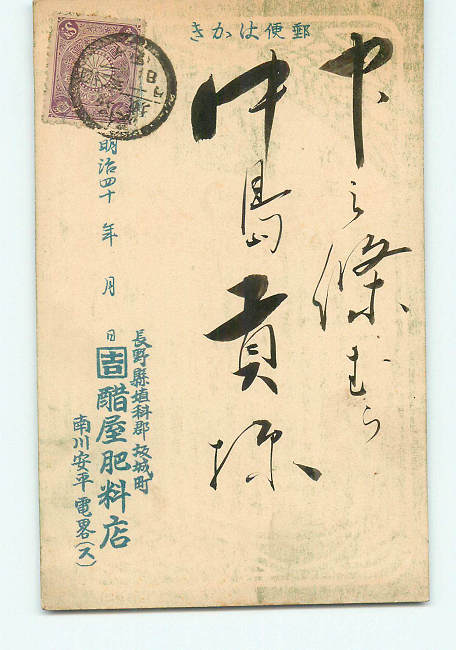 郵便はかき
中之條むら
中島貢様
明治四十 年 月 日
長野縣埴科郡坂城町
吉 醋屋肥料店
南川安平 電畧(ス)